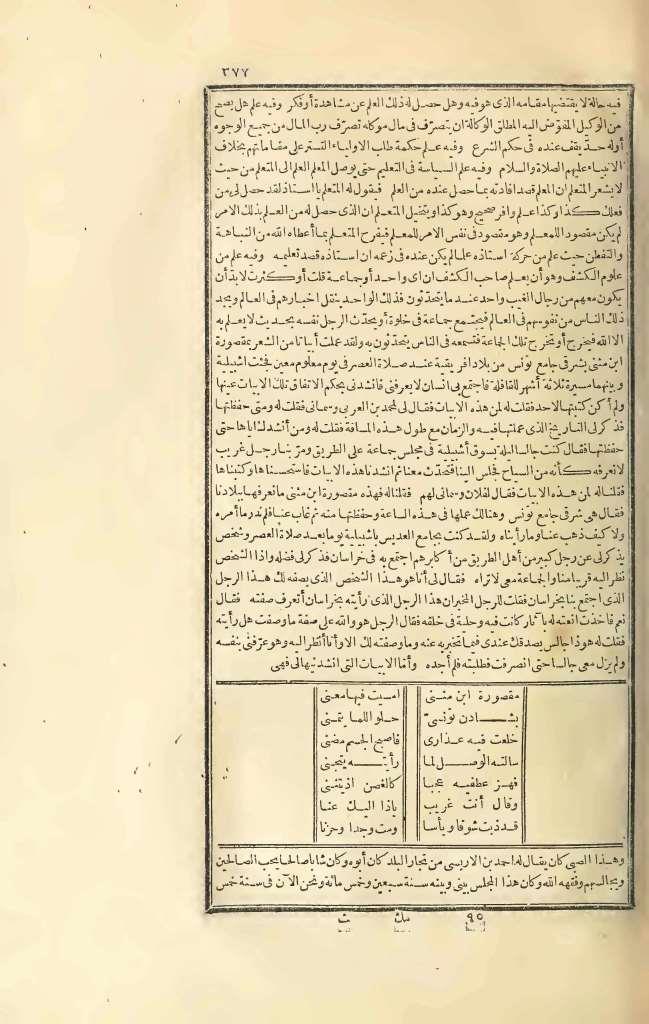 ٣٧٧
فيه حالة لا يقتضيها مقامه الذى هو فيه وهل حصل له ذلك العلم عن مشاهدة أو فكر وفيه علم هل يصح
من الوكيل المفوّض اليه المطلق الوكالة ان يتصرّف فى مال موكله تصرّف رب المال من جميع الوجوه
أوله حدّ يقف عنده فى حكم الشرع وفيه علم حكمة طلب الاولياء التستر على مقاماتهم بخلاف
الانبياء عليهم الصلاة والسلام وفيه علم السياسة فى التعليم حتى يوصل المعلم العلم الى المتعلم من حيث
لا يشعر المتعلم ان المعلم قصد افادته بما حصل عنده من العلم فيقول له المتعلم يا استاذ لقد حصل لى من
فعلك كذا وكذا علم وافر صحيح وهو كذا ويتخيل المتعلم ان الذى حصل له من العلم بذلك الامر
لم يكن مقصود اللمعلم وهو مقصود فى نفس الامر للمعلم فيفرح المتعلم بما أعطاه الله من النباهة
والتفطن حيث علم من حركة استاذه علما لم يكن عنده فى زعمه ان استاذه قصد تعليمه وفيه علم من
علوم الكشف وهو أن يعلم صاحب الكشف ان اى واحد أو جماعة قلت أو كثرت لابد أن
يكون معهم من رجال الغيب واحد عند ما يتحدّثون فذلك الواحد ينقل اخبارهم فى العالم ويجد
ذلك الناس من نفوسهم فى العالم فيجتمع جماعة فى خلوة أو يحدّث الرجل نفسه بحديث لا يعلم به
الا الله فيخرج أو يخرج تلك الجماعة فتسمعه فى الناس يتحدّثون به ولقد عملت أبياتا من الشعر بمقصورة
ابن مثنى بشرقى جامع تونس من بلاد افريقية عند صلاة العصر فى يوم معلوم معين فجئت اشبيلية
وبينهما مسيرة ثلاثة أشهر للقافلة فاجتمع بى انسان لا يعرفنى فانشدنى بحكم الاتفاق تلك الابيات عينها
ولم أكن كتبتها لاحد فقلت له لمن هذه الابيات فقال لى لمحمد بن العربى وسمانى فقلت له ومتى حفظتها
فذكر لى التاريخ الذى عملتها فيه والزمان مع طول هذه المسافة فقلت له ومن أنشدك اياها حتى
حفظتها فقال كنت جالسا ليلة بسوق أشبيلية فى مجلس جماعة على الطريق ومرّ بنا رجل غريب
لا نعرفه كأنه من السياح فجلس الينا فتحدّث معنا ثم انشدنا هذه الابيات فاستحسناها وكتبناها
فقلنا له لمن هذه الابيات فقال لفلان وسمانى لهم فقلنا له فهذه مقصورة ابن مثنى ما نعرفها ببلادنا
فقال هى شرقى جامع تونس وهنالك عملها فى هذه الساعة وحفظتها منه ثم غاب عنا فلم ندر ما أمره
ولا كيف ذهب عنا وما رأيناه ولقد كنت بجامع العديس باشبيلية يوما بعد صلاة العصر وشخص
يذكر لى عن رجل كبير من أهل الطريق من أكابرهم اجتمع به فى خراسان فذكر لى فضله واذا الشخص
نظر اليه قريبا منا والجماعة معى لا تراه فقال لى أنا هو هذا الشخص الذى يصفه لك هذا الرجل
الذى اجتمع بنا بخراسان فقلت للرجل المخبر ان هذا الرجل الذى رأيته بخراسان أتعرف صفته فقال
نعم فاخذت انعته له بآثار كانت فيه وحلية فى خلقه فقال الرجل هو والله على صفة ما وصفت هل رأيته
فقلت له هو ذا جالس يصدقك عندى فيما تخبر به عنه وما وصفته لك الا وأنا أنظر اليه وهو عرّفنى بنفسه
ولم يزل معى جالسا حتى انصرفت فطلبته فلم أجده وأما الابيات التى انشدنيها لى فهى
مقصورة ابن مثنى امسيت فيها معنى
بشادن تونسىّ حلو اللما يتمنى
خلعت فيه عذارى فاصبح الجسم مضنى
سالته الوصل لما رأيته يتجنى
فهز عطفيه عجبا كالغصن اذ يتثنى
وقال أنت غريب يا ذا اليك عنا
فذبت شوقا ويأسا ومت وجدا وحزنا
وهذا الصبى كان يقال له احمد بن الادريسى من تجار البلد كان أبوه وكان شابا صالحا يحب الصالحين
ويجالسهم وفقهه الله وكان هذا المجلس بينى وبينه سنة تسعين وخمس مائة ونحن الآن فى سنة خمس
٩٥ مك ث